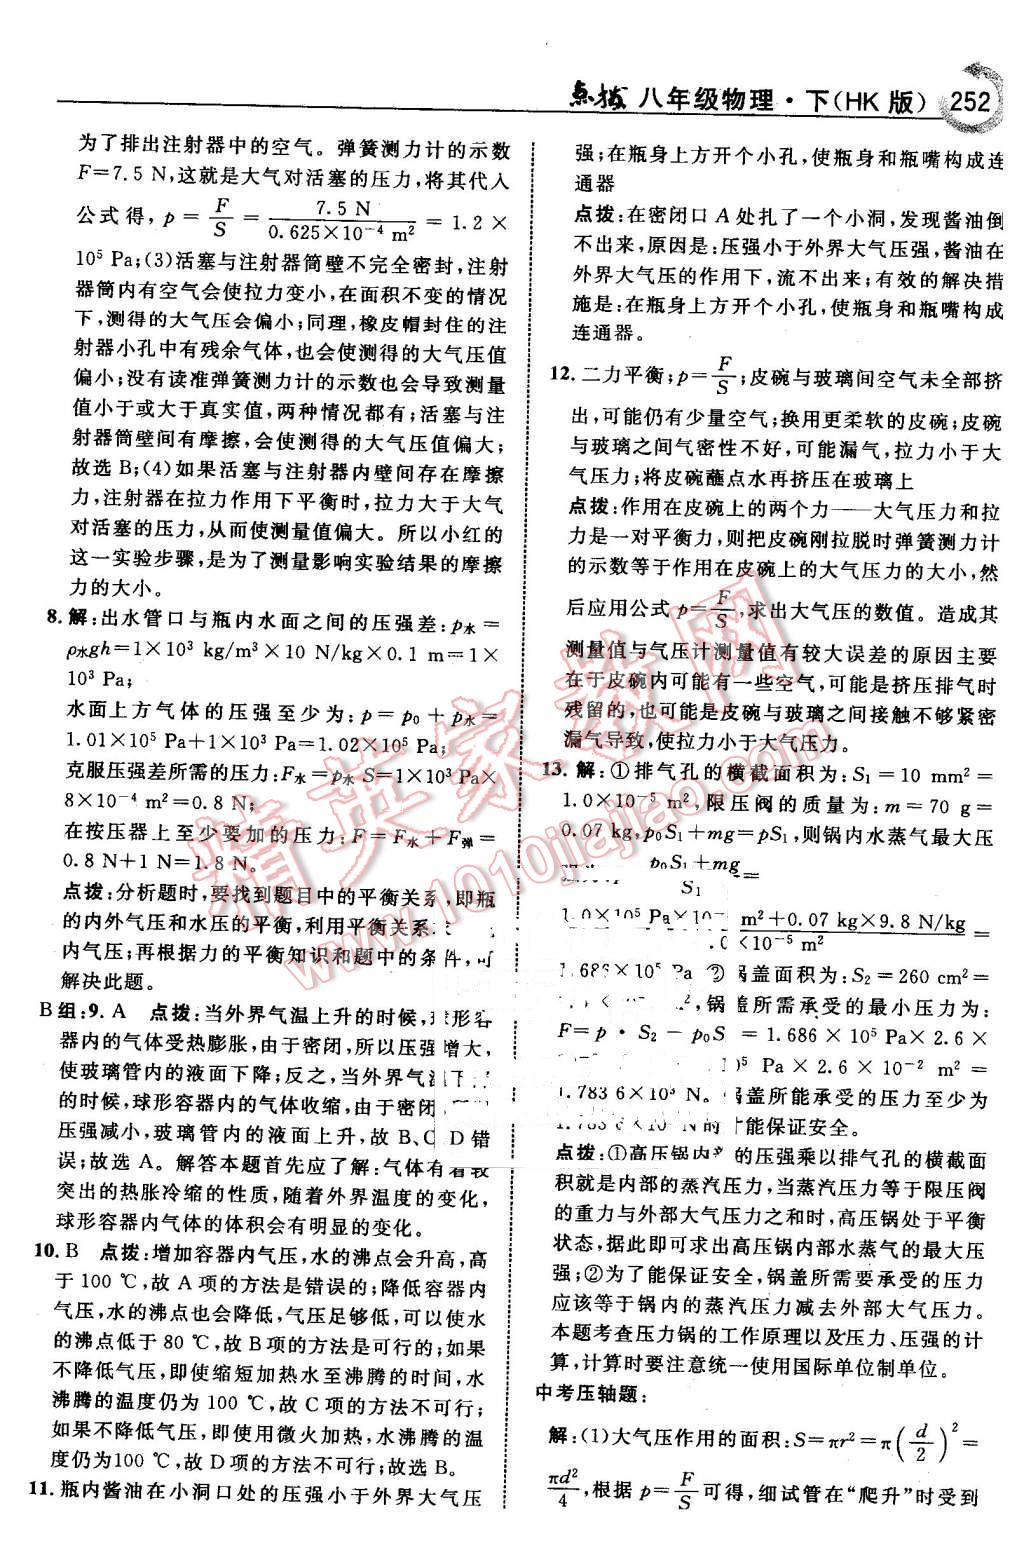 点拨 八年级物理·下(HK版) 252
为了排出注射器中的空气。弹簧测力计的示数
F=7.5 N,这就是大气对活塞的压力,将其代入
公式得, p = F/S = 7.5 N/(0.625×10⁻⁴ m²) = 1.2 ×
10⁵ Pa;(3)活塞与注射器筒壁不完全密封,注射
器筒内有空气会使拉力变小,在面积不变的情况
下,测得的大气压会偏小;同理,橡皮帽封住的注
射器小孔中有残余气体,也会使测得的大气压值
偏小;没有读准弹簧测力计的示数也会导致测量
值小于或大于真实值,两种情况都有;活塞与注
射器筒壁间有摩擦,会使测得的大气压值偏大;
故选 B;(4)如果活塞与注射器内壁间存在摩擦
力,注射器在拉力作用下平衡时,拉力大于大气
对活塞的压力,从而使测量值偏大。所以小红的
这一实验步骤,是为了测量影响实验结果的摩擦
力的大小。
8. 解:出水管口与瓶内水面之间的压强差:p水=
ρ水gh=1×10³ kg/m³×10 N/kg×0.1 m=1×
10³ Pa;
水面上方气体的压强至少为:p=p₀+p水=
1.01×10⁵ Pa+1×10³ Pa=1.02×10⁵ Pa;
克服压强差所需的压力:F水=p水 S=1×10³ Pa×
8×10⁻⁴ m²=0.8 N;
在按压器上至少要加的压力:F=F水+F弹=
0.8 N+1 N=1.8 N。
点拨:分析题时,要找到题目中的平衡关系,即瓶
的内外气压和水压的平衡,利用平衡关系
内气压;再根据力的平衡知识和题中的条件,可
解决此题。
B组:9. A 点拨:当外界气温上升的时候,球形容
器内的气体受热膨胀,由于密闭,所以压强增大,
使玻璃管内的液面下降;反之,当外界气 下
的时候,球形容器内的气体收缩,由于密闭
压强减小,玻璃管内的液面上升,故 B、C、D 错
误;故选 A。解答本题首先应了解:气体有着较
突出的热胀冷缩的性质,随着外界温度的变化,
球形容器内气体的体积会有明显的变化。
10. B 点拨:增加容器内气压,水的沸点会升高,高
于 100 ℃,故 A 项的方法是错误的;降低容器内
气压,水的沸点也会降低,气压足够低,可以使水
的沸点低于 80 ℃,故 B 项的方法是可行的;如果
不降低气压,即使缩短加热水至沸腾的时间,水
沸腾的温度仍为 100 ℃,故 C 项的方法不可行;
如果不降低气压,即使用微火加热,水沸腾的温
度仍为100 ℃,故 D 项的方法不可行;故选 B。
11. 瓶内酱油在小洞口处的压强小于外界大气压
强;在瓶身上方开个小孔,使瓶身和瓶嘴构成连
通器
点拨:在密闭口 A 处扎了一个小洞,发现酱油倒
不出来,原因是:压强小于外界大气压强,酱油在
外界大气压的作用下,流不出来;有效的解决措
施是:在瓶身上方开个小孔,使瓶身和瓶嘴构成
连通器。
12. 二力平衡;p=F/S;皮碗与玻璃间空气未全部挤
出,可能仍有少量空气;换用更柔软的皮碗;皮碗
与玻璃之间气密性不好,可能漏气,拉力小于大
气压力;将皮碗蘸点水再挤压在玻璃上
点拨:作用在皮碗上的两个力——大气压力和拉
力是一对平衡力,则把皮碗刚拉脱时弹簧测力计
的示数等于作用在皮碗上的大气压力的大小,然
后应用公式 p=F/S,求出大气压的数值。造成其
测量值与气压计测量值有较大误差的原因主要
在于皮碗内可能有一些空气,可能是挤压排气时
残留的,也可能是皮碗与玻璃之间接触不够紧密
漏气导致,使拉力小于大气压力。
13. 解:①排气孔的横截面积为:S₁=10 mm²=
1.0×10⁻⁵ m²,限压阀的质量为:m=70 g=
0.07 kg,p₀S₁+mg=pS₁,则锅内水蒸气最大压
(p₀S₁+mg)/S₁
1.0×10⁵ Pa×10 m²+0.07 kg×9.8 N/kg =
.0×10⁻⁵ m²
1.686×10⁵ Pa ②锅盖面积为:S₂=260 cm²=
m²,锅盖所需承受的最小压力为:
F=p·S₂−p₀S = 1.686×10⁵ Pa×2.6×
Pa×2.6×10⁻² m² =
1.783 6×10³ N。锅盖所能承受的压力至少为
1.783 6×10³ N的才能保证安全。
点拨:①高压锅内 的压强乘以排气孔的横截面
积就是内部的蒸汽压力,当蒸汽压力等于限压阀
的重力与外部大气压力之和时,高压锅处于平衡
状态,据此即可求出高压锅内部水蒸气的最大压
强;②为了能保证安全,锅盖所需要承受的压力
应该等于锅内的蒸汽压力减去外部大气压力。
本题考查压力锅的工作原理以及压力、压强的计
算,计算时要注意统一使用国际单位制单位。
中考压轴题:
解:(1)大气压作用的面积:S=πr²=π(d/2)²=
πd²/4,根据 p=F/S可得,细试管在“爬升”时受到
精英家教网
www.1010jiajiao.com